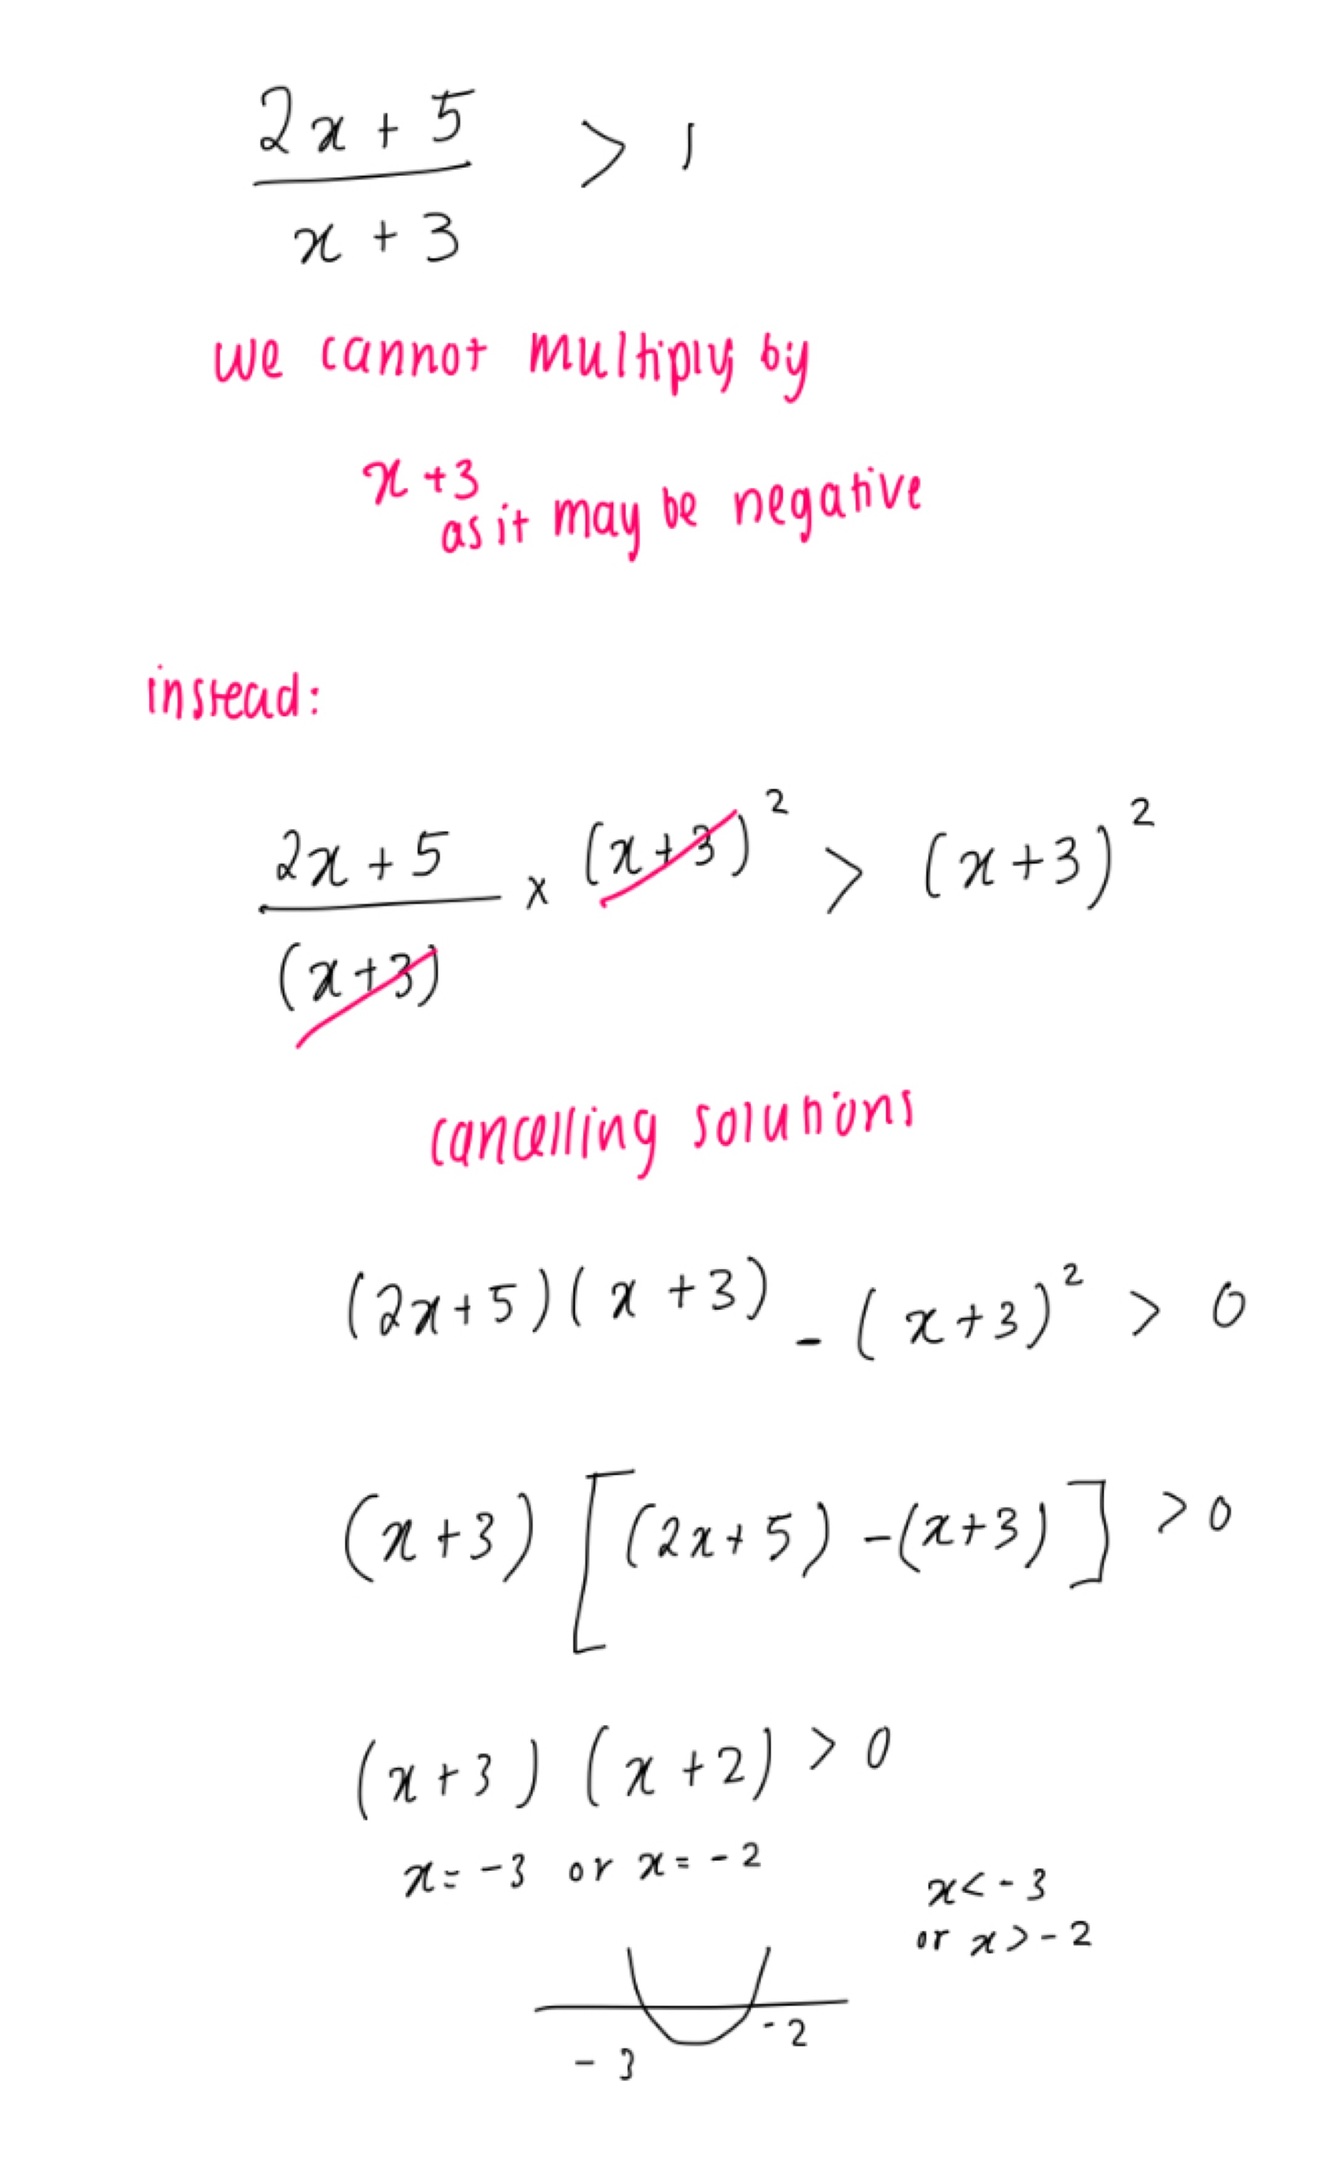 2x + 5 > 1
x + 3
we cannot multiply by
x + 3
as it may be negative
instead:
2x + 5 x (x+3)² > (x+3)²
(x+3)
cancelling solutions
(2x+5)(x+3) - (x+3)² > 0
(x+3) [(2x+5) -(x+3)] > 0
(x+3) (x+2) > 0
x = -3 or x = -2
x < -3
or x > -2
-2
-3